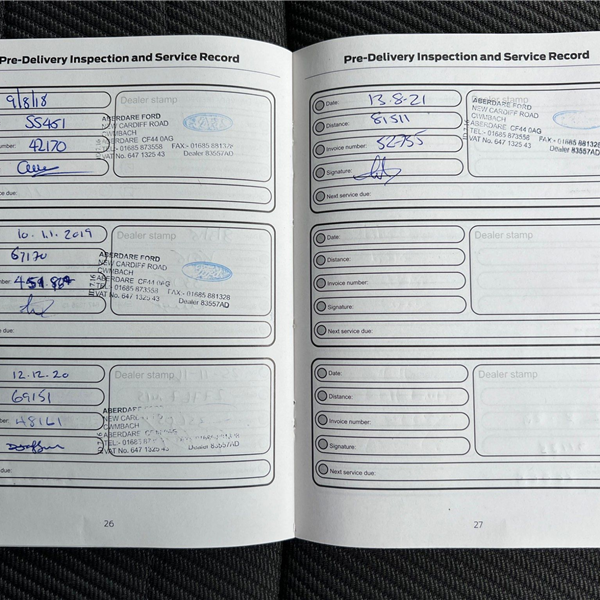 Pre-Delivery Inspection and Service Record
9/8/18
55451
umber: 42170
e due:
Dealer stamp
ABERDARE FORD
NEW CARDIFF ROAD
CWMBACH
ABERDARE CF44 0AG
TEL - 01685 873558 FAX - 01685 881328
VAT No. 647 1325 43 Dealer 83557AD
10.11.2019
67170
ber:
e due:
Dealer stamp
ABERDARE FORD
NEW CARDIFF ROAD
CWMBACH
ABERDARE CF44 0AG
TEL - 01685 873558 FAX - 01685 881328
VAT No. 647 1325 43 Dealer 83557AD
12.12.20
69151
ber: 48161
due:
Dealer stamp
CWMBACH
VAT No. 647 1325 43 Dealer 83557AD
26
Pre-Delivery Inspection and Service Record
Date: 13-8-21
Distance: 81511
Invoice number: 52755
Signature:
Next service due:
ABERDARE FORD
NEW CARDIFF ROAD
CWMBACH
ABERDARE CF44 0AG
TEL - 01685 873558 FAX - 01685 881328
VAT No. 647 1325 43 Dealer 83557AD
Date:
Distance:
Invoice number:
Signature:
Next service due:
Dealer stamp
Date:
Distance:
Invoice number:
Signature:
Next service due:
Dealer stamp
27